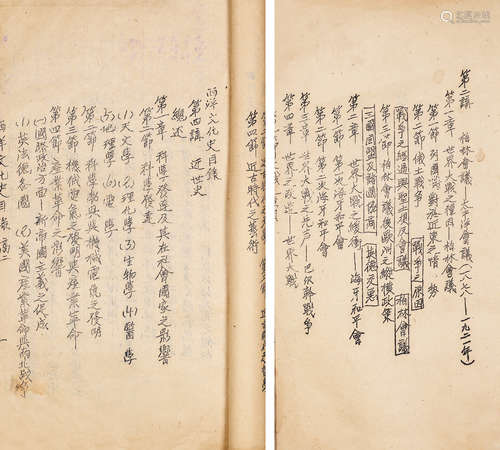 第二講 柏林會議—太平洋會議(一八七八—一九二一年)
第一章 世界大戰之種因—柏林會議
第一節 列國對於近東之情勢
第二節 俄土戰爭 戰爭之原因
戰爭之經過與聖士提反會議 柏林會議
第三節 柏林會議後歐洲之縱橫政策
三國同盟及三國協商 英德交惡
第二章 世界大戰之緩衝—海牙和平會
第一節 第一次海牙和平會
第二節 第二次海牙和平會
第三章 世界大戰之 —巴伐幹戰爭
第四章 世界之改造—世界大戰
西洋文化史目錄
第四講 近世史
總述
第一章 科學發達及其在社會國家之影響
第一節 科學發達
(1)天文學 (2)理化學 (3)生物學 (4)醫學
(5)地理學 (6)電學
第二節 科學教與與機械電氣之發明
第三節 機械電氣之發明與產業革命
第四節 產業革命之影響
(一)國際政治方面—新帝國主義之代成
(1)英法德各國 (2)美國產業革命與南北戰爭
西洋文化史目錄 高二
第四節 近古時代之藝術